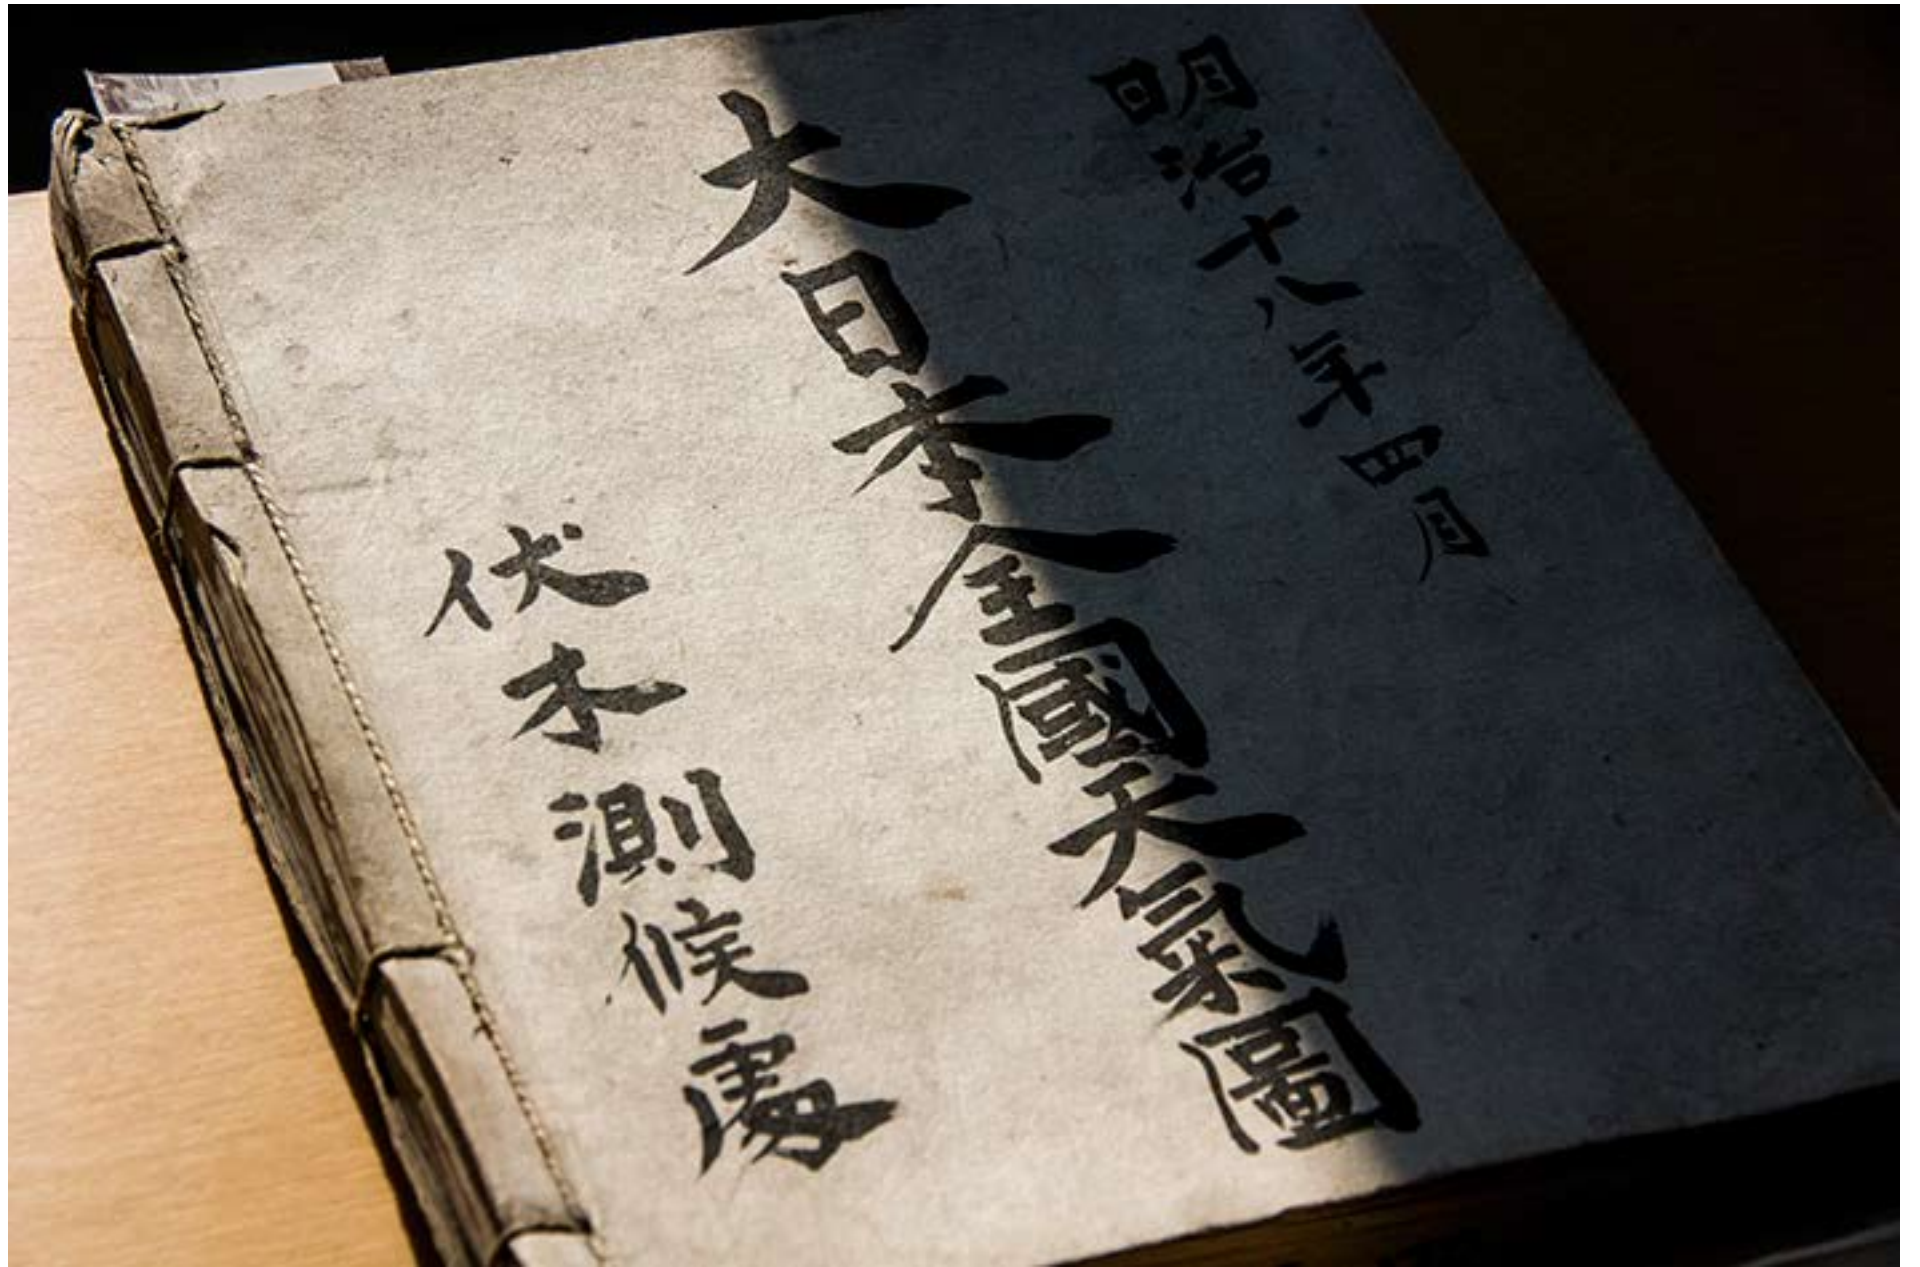 明治十八年四月
大日本全國天氣圖
伏木測候處